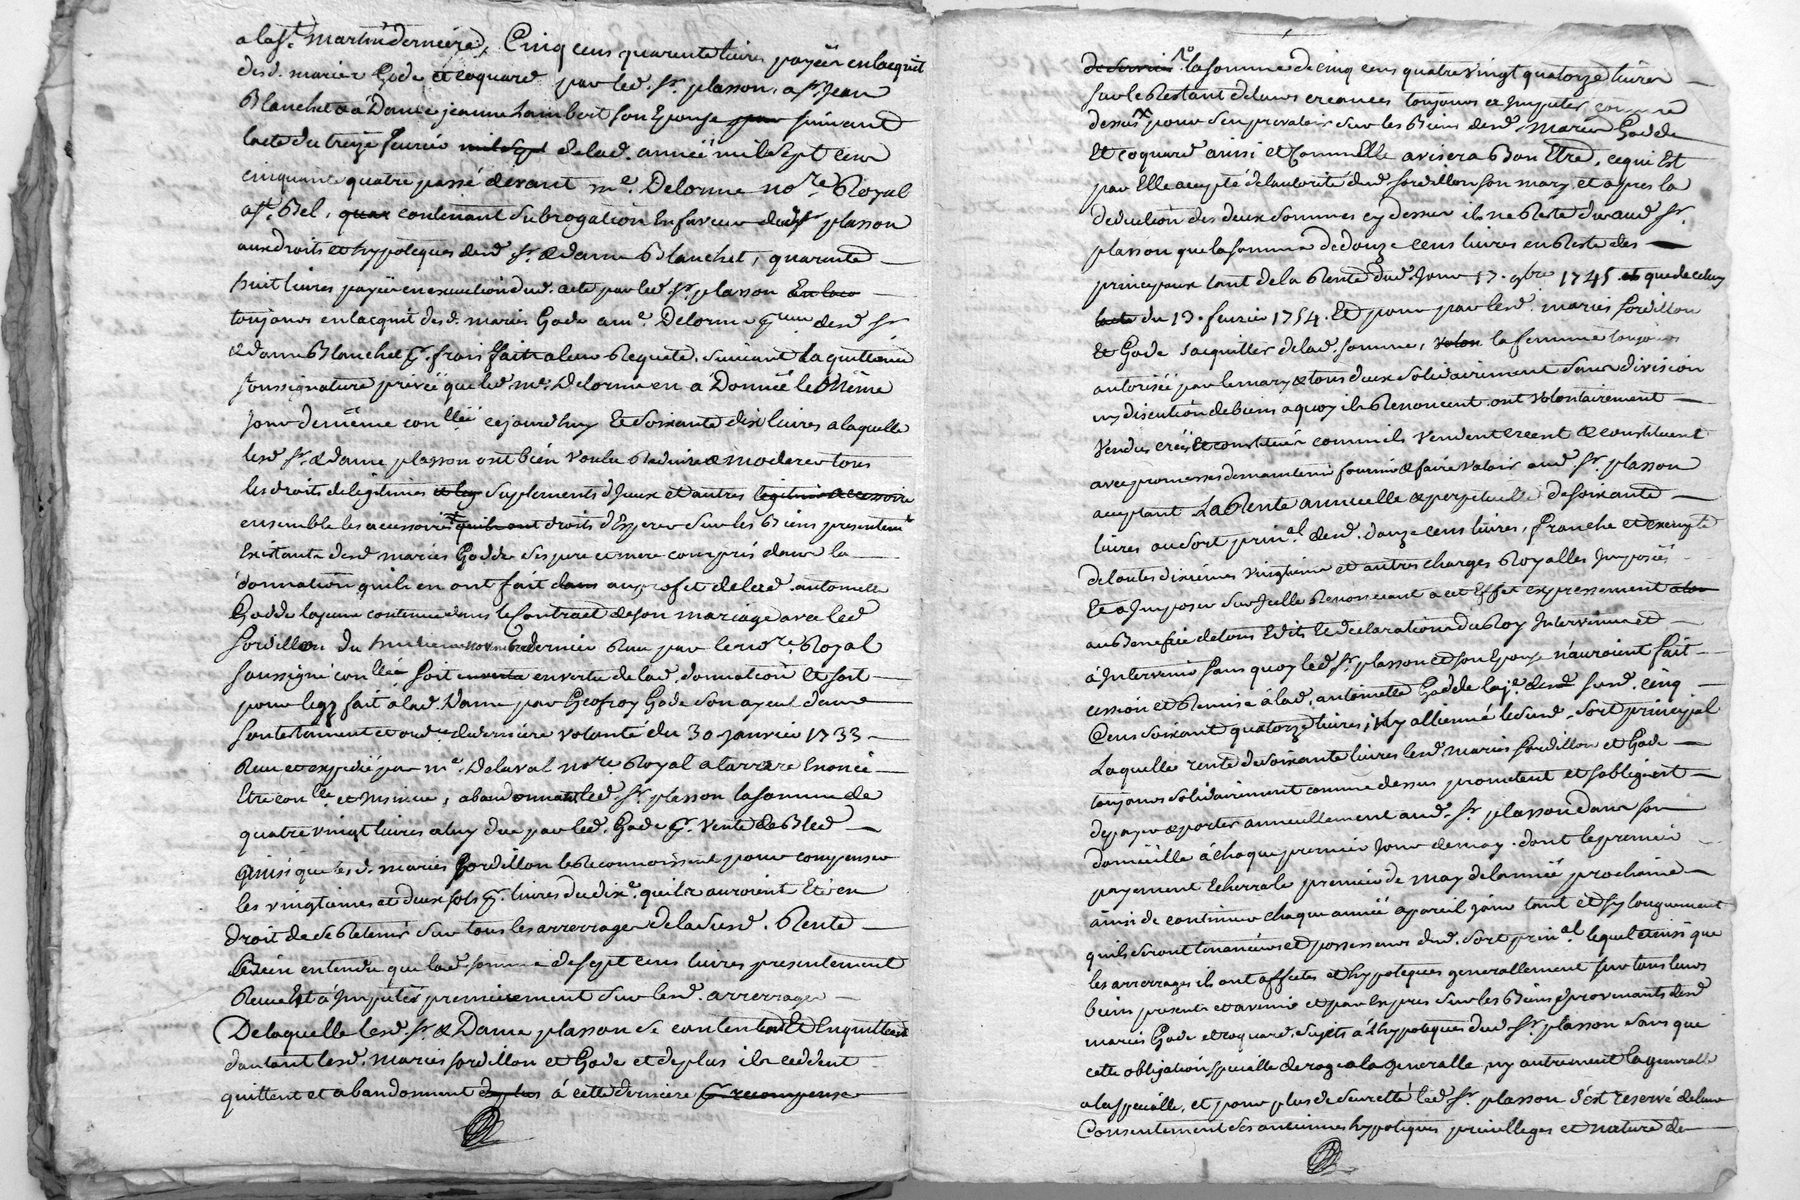 a la St. Martin derniere, Cinq cens quarente livres payées en lacquit
desd. mariez Gode et Coquard par led. Sr. plasson, a Sr. Jean
Blanchet & a Dame jeanne Lambert son Epouse pour suivant
lacte du treize fevrier mil sept de lad. année mil sept cens
cinquante quatre passé devant me. Delorme nore Royal
a St. Bel, quar contenant subrogation en faveur dud. Sr plasson
aux droits et hypoteques desd. Sr. & dame Blanchet, quarente
huit livres payées en execution dud. acte par led. Sr. plasson En lac
toujours en lacquit desd. mariés Gode a me. Delorme desd. Sr
& dame Blanchet pr. frais faits a leur Requete, suivant La quittance
sous signature privée que led. me. Delorme en a Donnée le Même
jour demême con llée cejourdhuy Et soixante dix livres a laquelle
lesd. Sr. & dame plasson ont bien voulu Reduire & moderer tous
les droits de legitimes et leg suplements dyceux et autres legitimes accessoire
ensemble les accessoires quils ont droits d'Esperer sur les Biens presentemt
Existants desd. mariés Godde ses pere et mere compris dans la
donnation quils en ont fait dans au profit de lad. antoinette
Godde la jeune contenue dans le Contract de son mariage avec led.
Sordillon du huit novembre dernier Reçu par le nore. Royal
soussigné con llée soit en vertu de lad. donnation Et soit
pour legs fait a lad. Dame par Geofroy Gode son ayeul dans
son testament et ordre de derniere volonté du 30 Janvier 1733
Reçu et expedié par me. Delaval nore. Royal a larbresle Enoncé
Etre con llé et insinué, abandonnant led. Sr. plasson la somme de
quatre vingt livres a luy due par led. Gode pr. vente de Bled
Ainsi que les d. mariés Sordillon le Reconnoissent pour compenser
les vingtiemes et deux sols pr. livres du dixe. quils auroient Eté en
droit de se Retenir sur tous les arrerrages de la susd. Rente
Bien entendu que lad. somme de sept cens livres presentement
Reçue Est a Imputer premierement sur lesd. arrerrages
De laquelle lesd. Sr. & Dame plasson se contentent Et Enquittent
dautant lesd. mariés Sordillon et Gode et deplus ils ceddent
quittent et abandonnent deplus à cette derniere pr recompense
la somme de cinq cens quatre vingt quatorze livres
sur le Restant de leurs creances toujours a Imputer comme
dessus pour s'en prevaloir sur les Biens desd. Mariés Godde
Et Coquard ainsi et Comme Elle avisera Bon Etre, ce qui Est
par Elle accepté de lautorité dud. Sordillon son mary, et apres la
deduction des deux sommes cy dessus il ne Reste du aud. Sr.
plasson que la somme de douze cens livres en Reste des
principaux tant de la Rente dud. Jour 17. 9bre 1745 et que de celuy
lacte du 13. fevrier 1754. Et pour par lesd. mariés Sordillon
Et Gode sacquitter de lad. somme, la femme toujours
autorisée par le mary & tous deux solidairement sans division
ny discution de biens a quoy ils Renoncent ont volontairement
Vendus créés Et constitués comme ils vendent créent & constituent
avec promesses de maintenir fournir & faire valoir aud. Sr. plasson
acceptant La Rente annuelle & perpetuelle de soixante
livres au sort prinal. desd. douze cens livres, franche et exempte
de toutes dixiemes vingtieme et autres charges Royalles Imposées
Et a Imposer sur Icelle Renonceant a cet Effet expressement
au Benefice de tous Edits & declarations du Roy Intervenus et
à Intervenir sans quoy led. Sr. plasson et son Epouse n'auroient fait
cession et Remise à lad. antoinette Godde la je. desd susd. cinq
Cens soixant quatorze livres, ny allienné le susd. sort principal
Laquelle rente de soixante livres lesd. mariés Sordillon et Gode
toujours solidairement comme dessus promettent et sobligent
de payer & porter annuellement aud. Sr. plasson dans son
domicille à chaque premier Jour de may. dont le premier
payement Echerra le premier de May de lannée prochaine
ainsi de continuer chaque année a pareil jour tant et sy longuement
quils seront tenanciers et possesseurs dud. sort prinal. lequel et ainsi que
les arrerrages ils ont affectés et hypotequés generallement sur tous leurs
biens presents et avenir et par Expres sur les Biens provenants desd.
mariés Gode et Coquard, sujets à lhypoteque dud. Sr. plasson sans que
cette obligation specialle deroge a la generalle, ny autrement la generalle
a la specialle, et pour plus de seureté led. Sr. plasson s'est reservé de leur
Consentement ses anciennes hypoteques privilleges et nature de